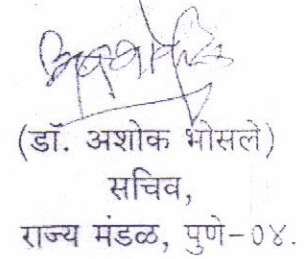 (डॉ. अशोक भोसले)
सचिव,
राज्य मंडळ, पुणे-०४.